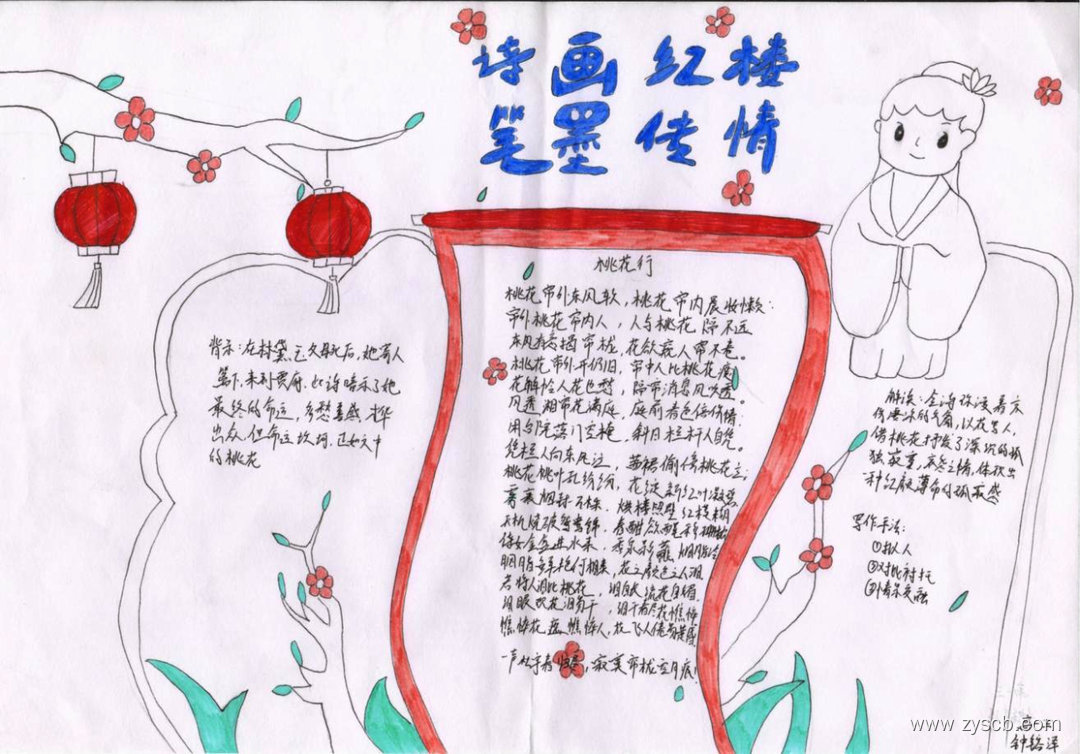 诗画红楼
笔墨传情
背景:在林黛玉父母死后,她寄人
篱下,来到贾府,此诗暗示了她
最终的命运,多愁善感,才华
出众,但命运坎坷,正如文中
的桃花
桃花行
桃花帘外东风软,桃花帘内晨妆懒:
帘外桃花帘内人,人与桃花隔不远
东风有意揭帘栊,花欲窥人帘不卷。
桃花帘外开仍旧,帘中人比桃花瘦
花解怜人花也愁,隔帘消息风吹透。
风透湘帘花满庭,庭前春色倍伤情:
闲苔院落门空掩,斜日栏杆人自凭。
凭栏人向东风泣,茜裙偷傍桃花立;
桃花桃叶乱纷纷,花绽新红叶凝碧
雾裹烟封一万株,烘楼照壁红模糊
天机烧破鸳鸯锦,春酣欲醒移珊枕
侍女金盆进水来,香泉影蘸胭脂冷
胭脂鲜艳何相类,花之颜色之人泪
若将人泪比桃花,泪自长流花自媚
泪眼观花泪易干,泪干春尽花憔悴
憔悴花遮憔悴人,花飞人倦易黄昏
一声杜宇春归尽,寂寞帘栊空月痕!
解读:全诗弥漫着哀
伤凄冷的气氛,以花喻人,
借桃花抒发了深沉的孤
独寂寞,哀怨之情,体现出
一种红颜薄命的孤寂感
写作手法:
①拟人
②对比衬托
③情景交融
www.zyscb.com